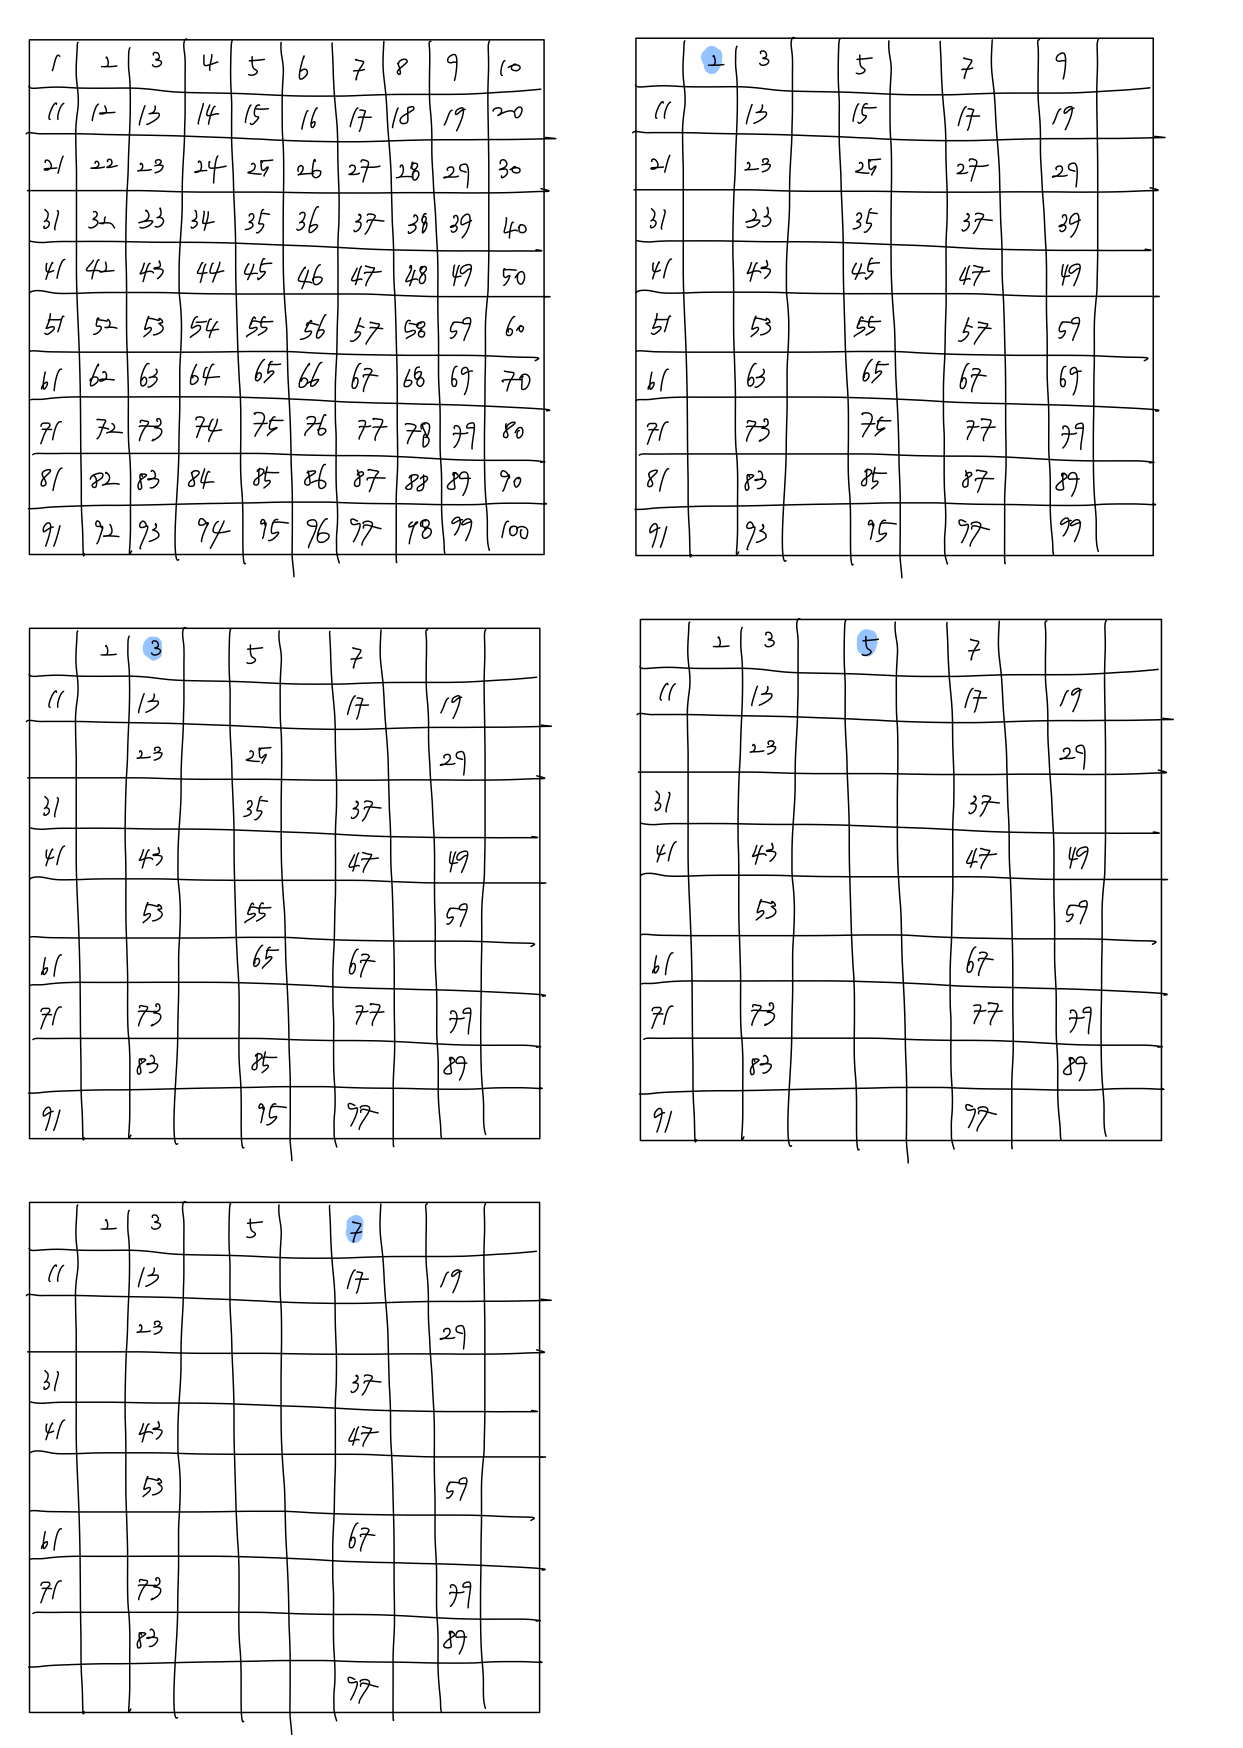 1 2 3 4 5 6 7 8 9 10
11 12 13 14 15 16 17 18 19 20
21 22 23 24 25 26 27 28 29 30
31 32 33 34 35 36 37 38 39 40
41 42 43 44 45 46 47 48 49 50
51 52 53 54 55 56 57 58 59 60
61 62 63 64 65 66 67 68 69 70
71 72 73 74 75 76 77 78 79 80
81 82 83 84 85 86 87 88 89 90
91 92 93 94 95 96 97 98 99 100
2 3 5 7 9
11 13 15 17 19
21 23 25 27 29
31 33 35 37 39
41 43 45 47 49
51 53 55 57 59
61 63 65 67 69
71 73 75 77 79
81 83 85 87 89
91 93 95 97 99
2 3 5 7
11 13 17 19
23 25 29
31 35 37
41 43 47 49
53 55 59
61 65 67
71 73 77 79
83 85 89
91 95 97
2 3 5 7
11 13 17 19
23 29
31 37
41 43 47 49
53 59
61 67
71 73 77 79
83 89
91 97
2 3 5 7
11 13 17 19
23 29
31 37
41 43 47
53 59
61 67
71 73 79
83 89
97